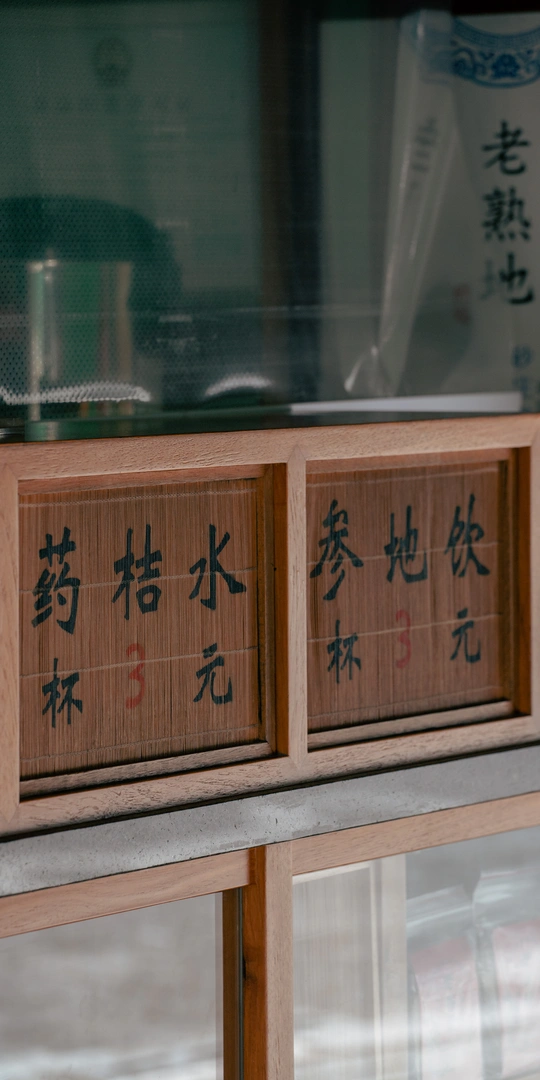 老熟地
药桔水
杯3元
参地饮
杯3元